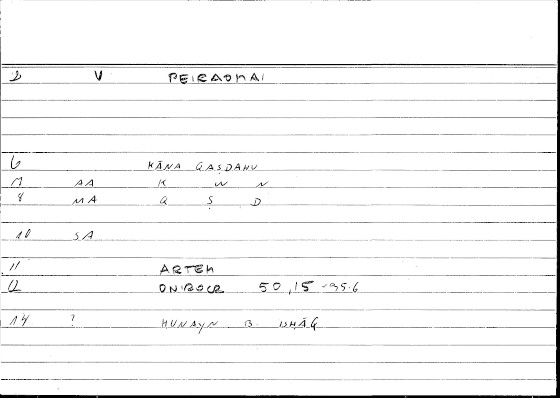 2 V PEIRAOMAI
6 KĀNA QAṢDAHU
7 AA K W N
8 MA Q Ṣ D
10 SA
11 ARTEM
12 ONIROCR 50,15 -95.6
14 ? HUNAYN B. ISHĀQ